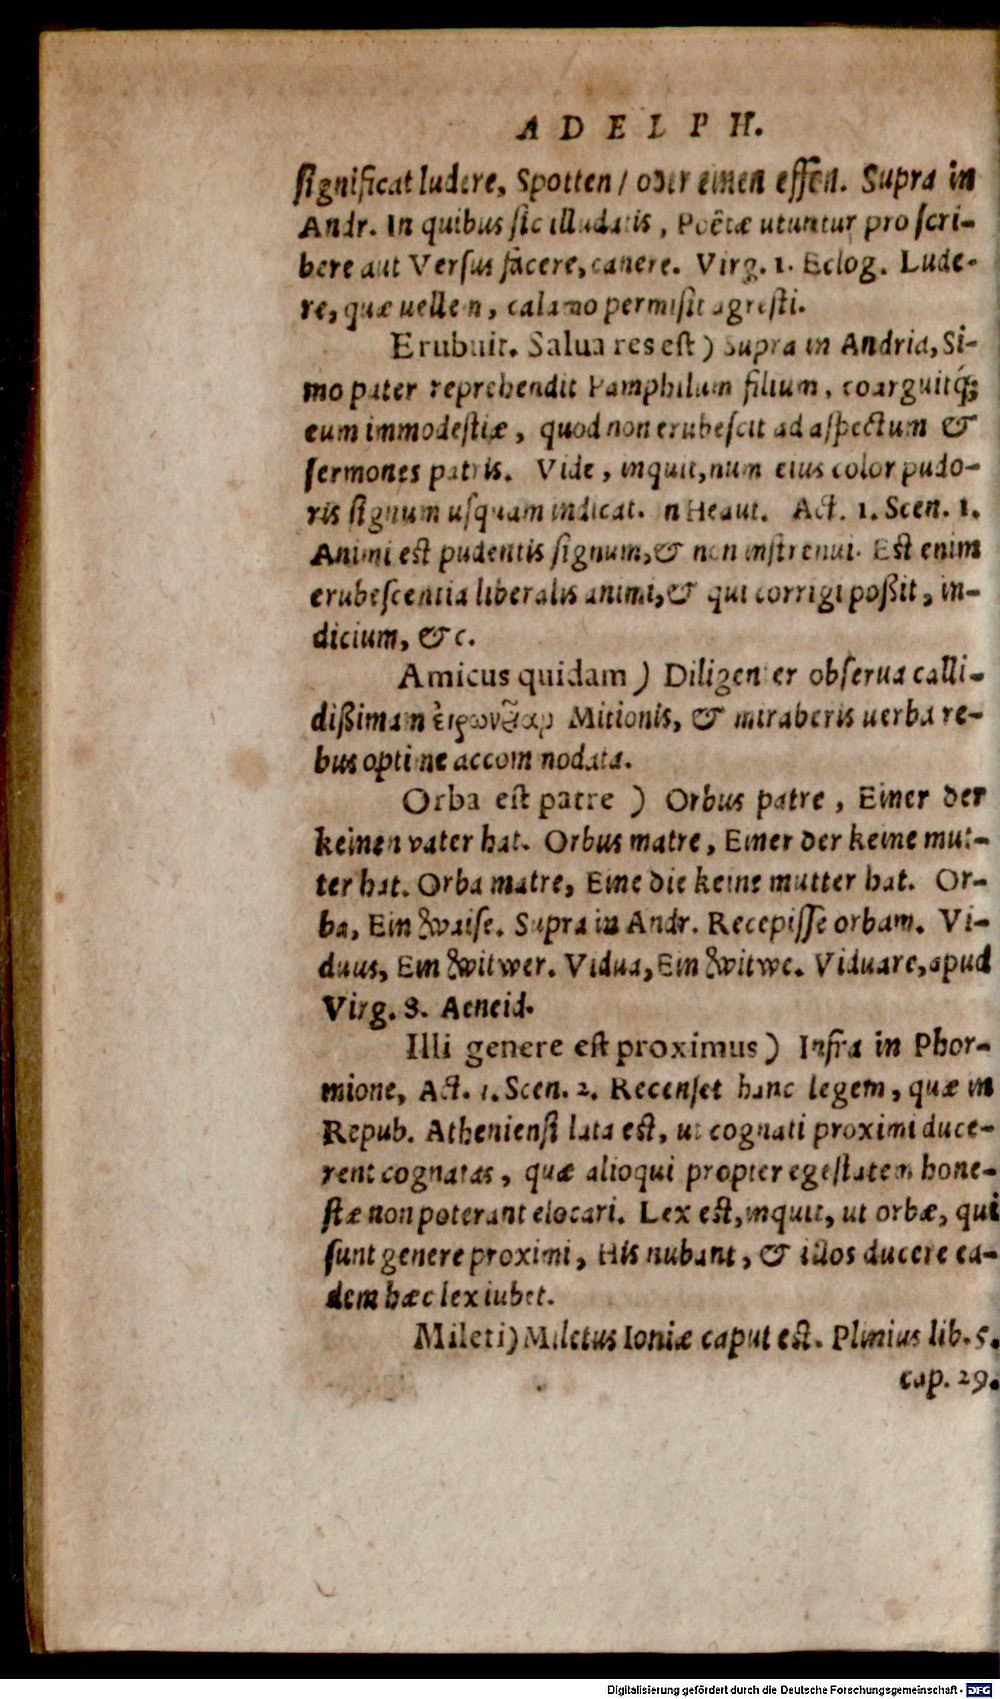 ADELPH.
ſignificat ludere, Spotten / oder einen effen. Supra in
Andr. In quibus ſic illudatis, Poëtæ utuntur pro ſcri-
bere aut Verſus facere, canere. Virg. 1. Eclog. Lude-
re, quæ uellem, calamo permiſit agreſti.
Erubuit. Salua res est) Supra in Andria, Si-
mo pater reprehendit Pamphilum filium, coarguitq́;
eum immodeſtiæ, quod non erubeſcit ad aſpectum &
ſermones patris. Vide, inquit, num eius color pudo-
ris ſignum uſquam indicat. In Heaut. Act. 1. Scen. 1.
Animi est pudentis ſignum, & non inſtrenui. Est enim
erubeſcentia liberalis animi, & qui corrigi poßit, in-
dicium, &c.
Amicus quidam) Diligenter obſerua calli-
dißimam Mitionis, & miraberis uerba re-
bus optime accommodata.
Orba est patre) Orbus patre, Einer der
keinen vater hat. Orbus matre, Einer der keine mut-
ter hat. Orba matre, Eine die keine mutter hat. Or-
ba, Ein waiſe. Supra in Andr. Recepiſſe orbam. Vi-
duus, Ein witwer. Vidua, Ein witwe. Viduare, apud
Virg. 8. Aeneid.
Illi genere est proximus) Infra in Phor-
mione, Act. 1. Scen. 2. Recenſet hanc legem, quæ in
Repub. Athenienſi lata est, ut cognati proximi duce-
rent cognatas, quæ alioqui propter egeſtatem hone-
ſtæ non poterant elocari. Lex est, inquit, ut orbæ, qui
ſunt genere proximi, His nubant, & illos ducere ea-
dem hæc lex iubet.
Mileti) Miletus Ioniæ caput est. Plinius lib. 5.
cap. 29.
Digitalisierung gefördert durch die Deutsche Forschungsgemeinschaft - DFG